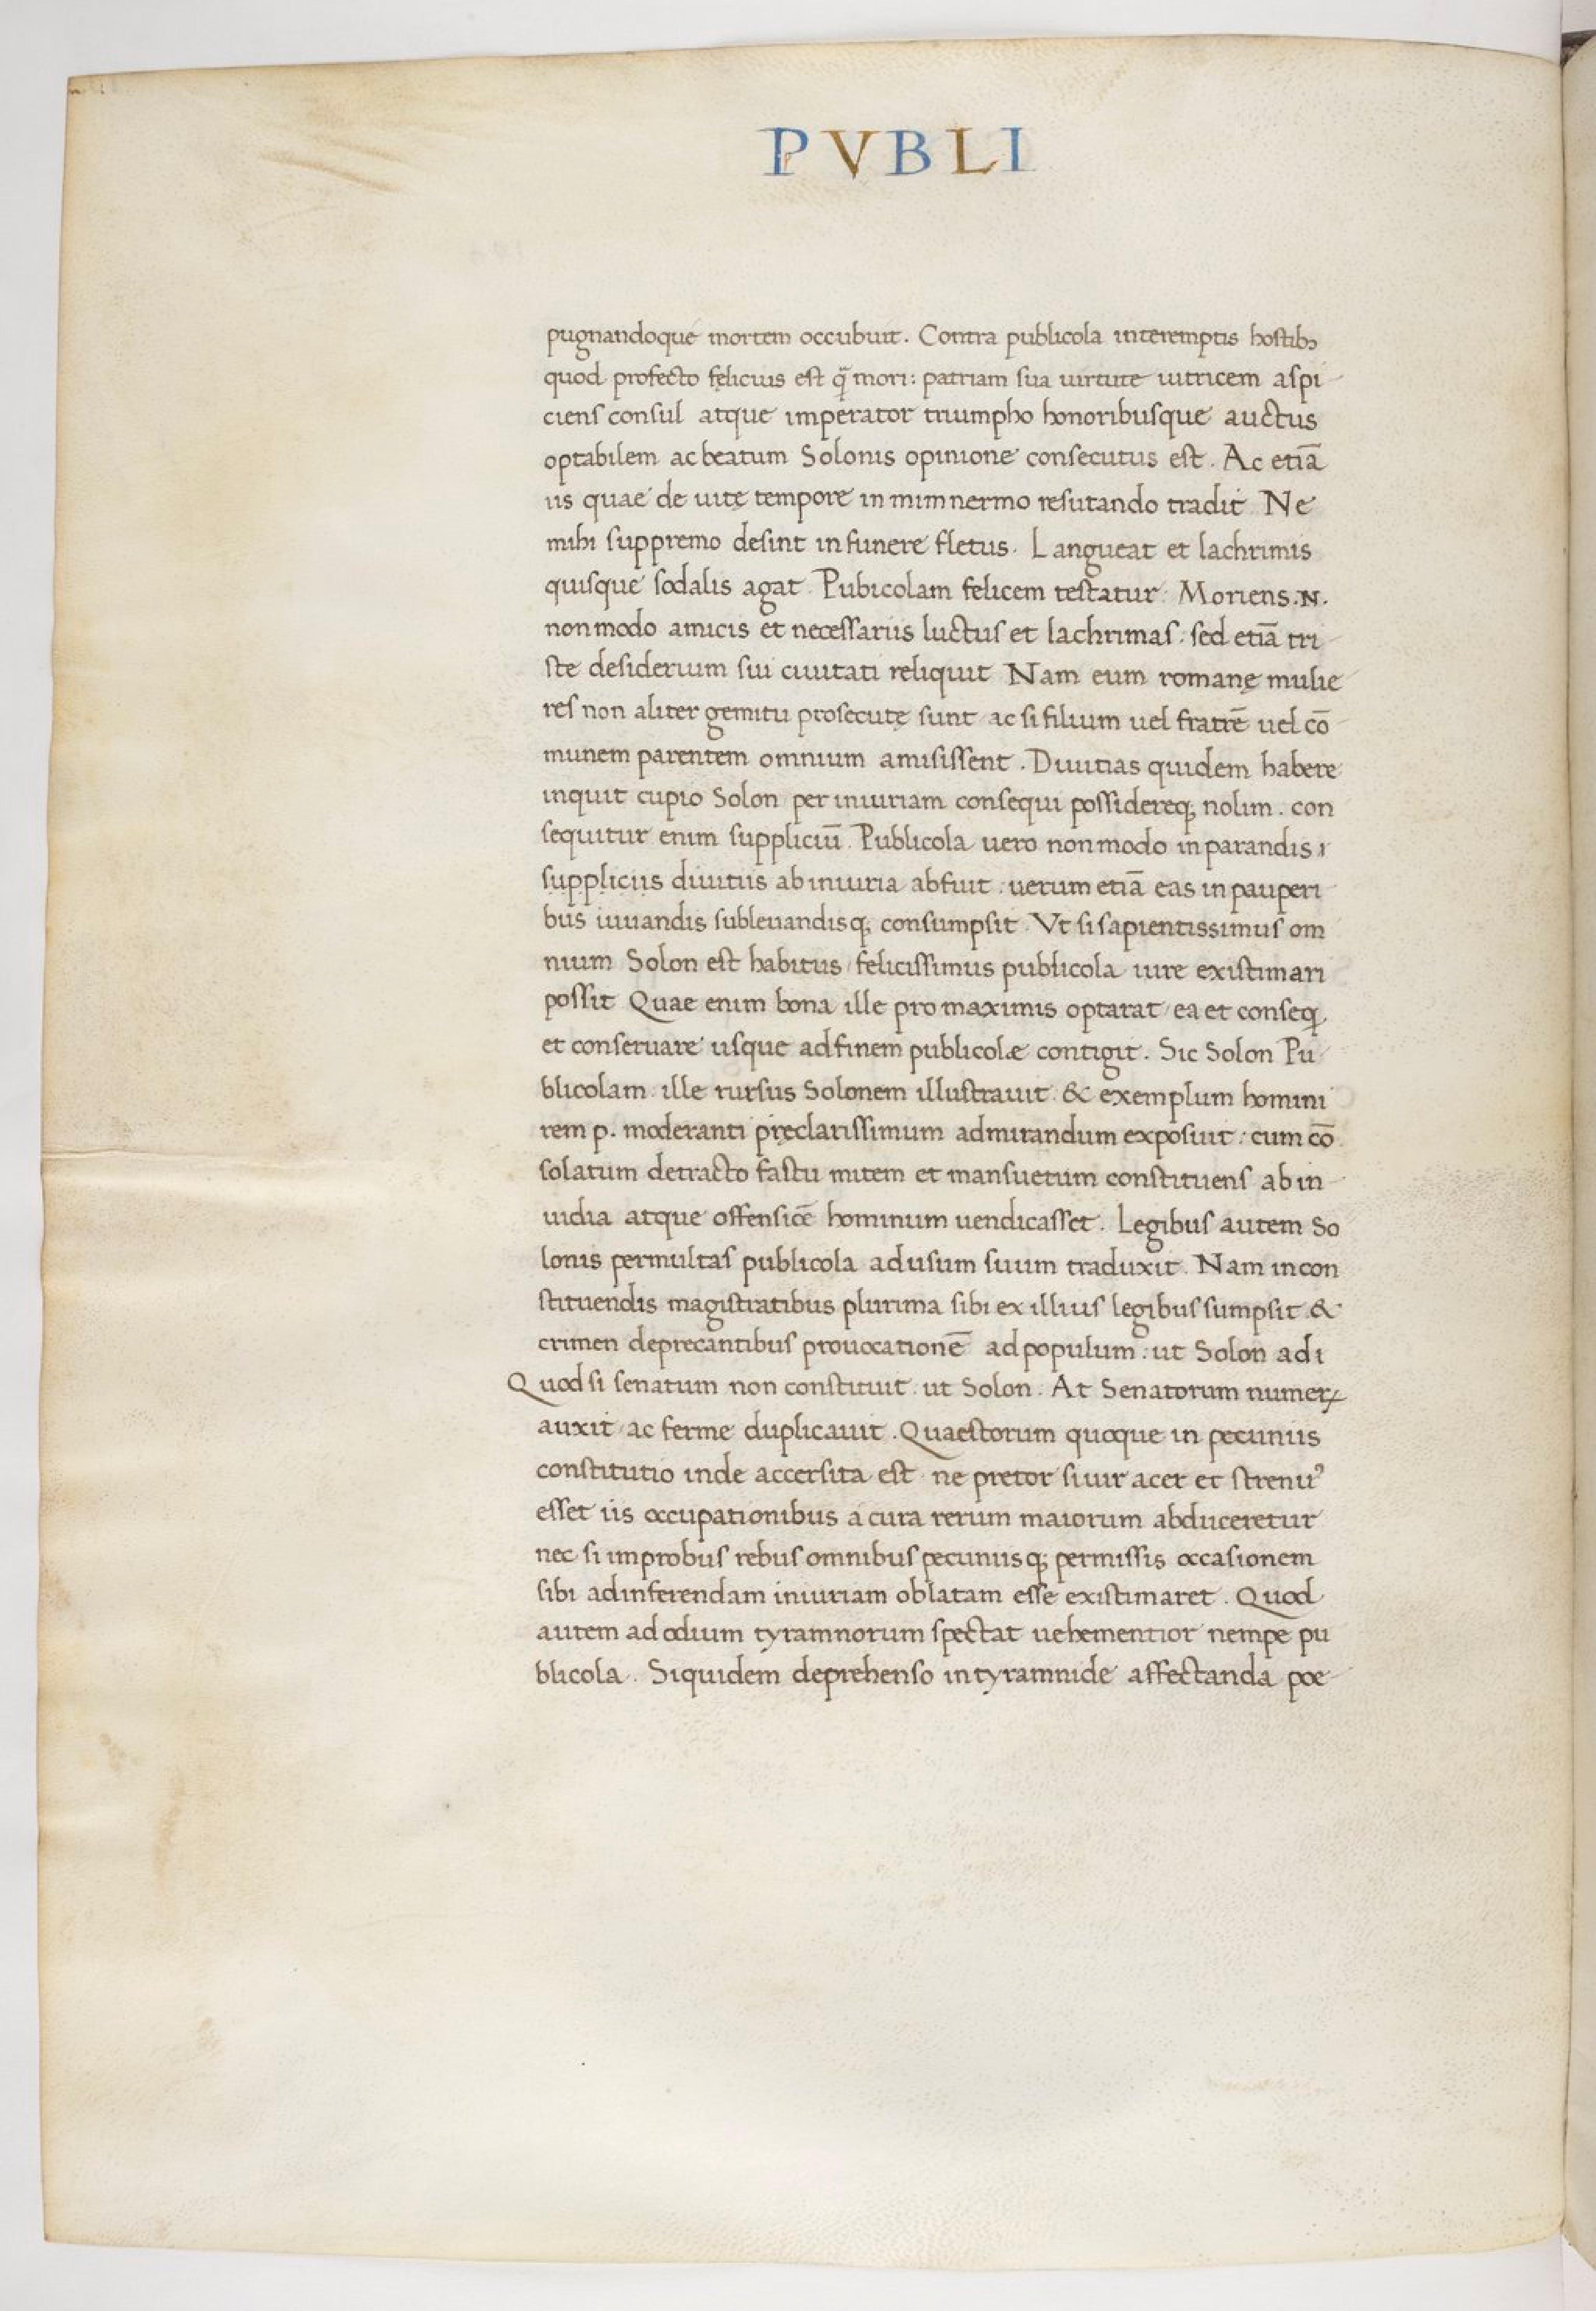 PVBLI
pugnandoque mortem occubuit. Contra publicola interemptis hostibꝫ
quod profecto felicius est q̄ mori: patriam sua uirtute uictricem aspi-
ciens consul atque imperator triumpho honoribusque auctus
optabilem ac beatum Solonis opinione consecutus est. Ac etiā
iis quae de uitę tempore in mimnermo refutando tradit Ne
mihi suppremo desint in funere fletus. Langueat et lachrimis
quisque sodalis agat. Pubicolam felicem testatur. Moriens .N.
non modo amicis et necessariis luctus et lachrimas: sed etiā tri-
ste desiderium sui ciuitati reliquit Nam eum romanę mulie
res non aliter gemitu prosecutę sunt ac si filium uel fratrē uel cō-
munem parentem omnium amisissent. Diuitias quidem habere
inquit cupio Solon per iniuriam consequi possidereq; nolim. con
sequitur enim suppliciū. Publicola uero non modo in parandis ı
suppliciis diuitiis ab iniuria abfuit: uerum etiā eas in pauperi-
bus iuuandis subleuandisq; consumpsit. Vt si sapientissimus om
nium Solon est habitus felicissimus publicola iure existimari
possit Quae enim bona ille pro maximis optarat ea et conseq̨
et conseruare usque ad finem publicolæ contigit. Sic Solon Pu-
blicolam ille rursus Solonem illustrauit & exemplum homini
rem p. moderanti pręclarissimum admirandum exposuit: cum cō
solatum detracto fastu mitem et mansuetum constituens ab in-
uidia atque offensiōe hominum uendicasset. Legibus autem So
lonis permultas publicola ad usum suum traduxit. Nam in con
stituendis magistratibus plurima sibi ex illius legibus sumpsit &
crimen deprecantibus prouocationē ad populum: ut Solon adi
Quod si senatum non constituit ut Solon. At Senatorum numerꝝ
auxit ac ferme duplicauit. Quaestorum quoque in pecuniis
constitutio inde accersita est ne pretor si uir acer et strenuꝰ
esset iis occupationibus a cura rerum maiorum abduceretur
nec si improbus rebus omnibus pecuniisq; permissis occasionem
sibi ad inferendam iniuriam oblatam esse existimaret. Quod
autem ad odium tyramnorum spectat uehementior nempe pu
blicola. Siquidem deprehenso in tyramnide affectanda poe-